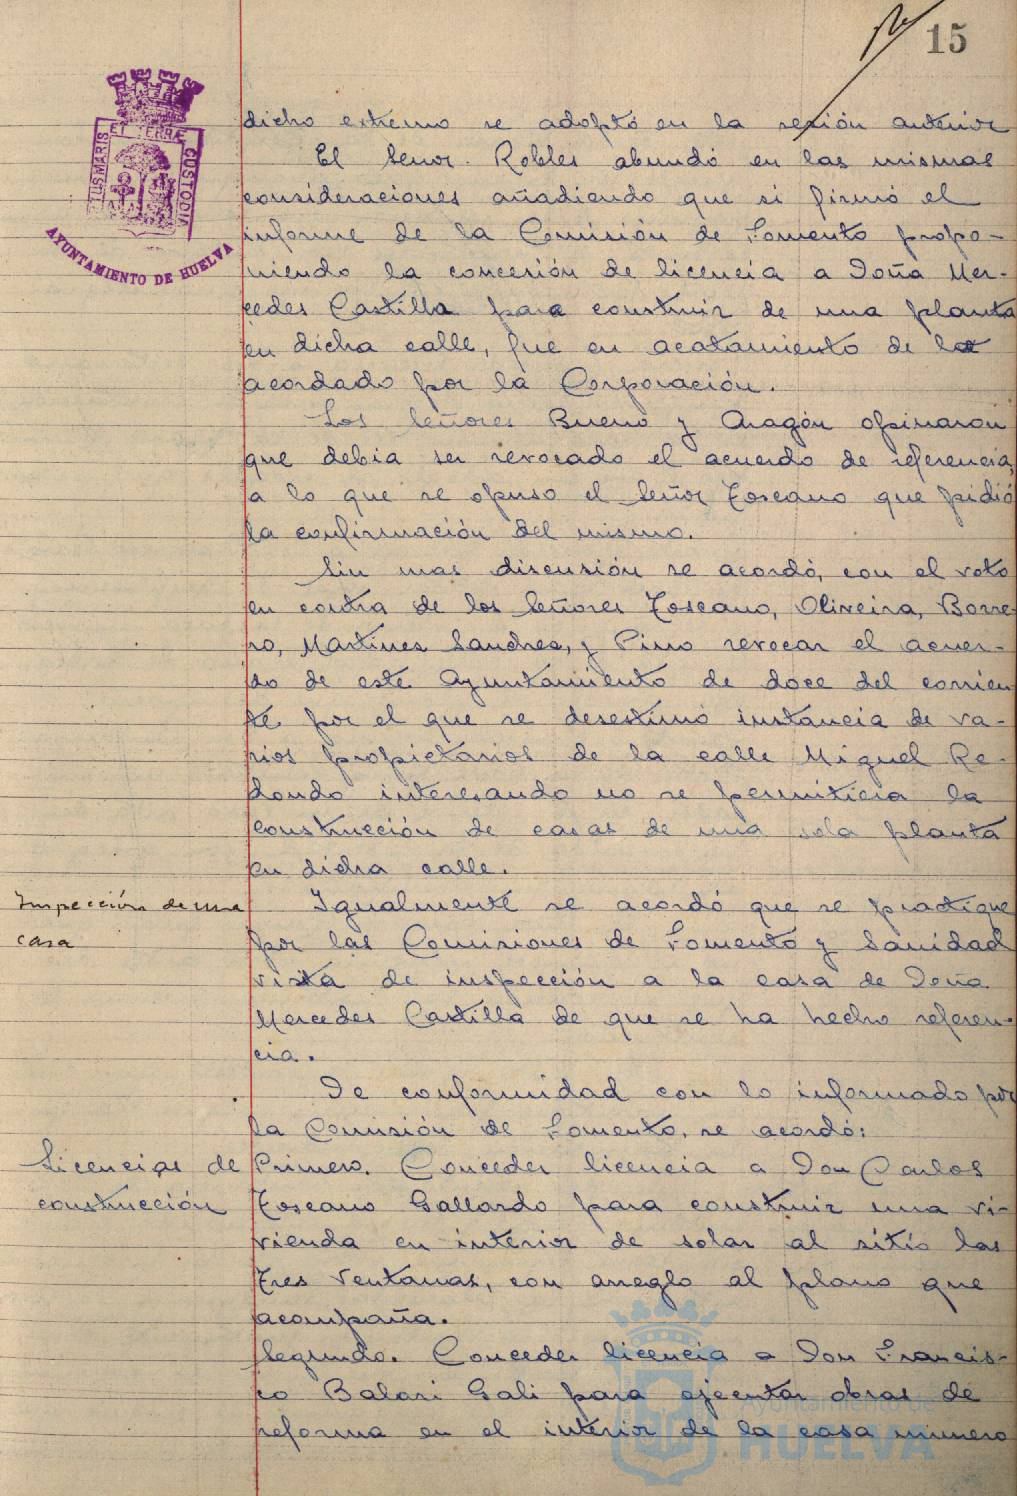 15
PORTUS MARIS ET TERRÆ CUSTODIA
AYUNTAMIENTO DE HUELVA
dicho extremo se adoptó en la sesión anterior
El Señor. Robles abundó en las mismas
consideraciones añadiendo que si firmó el
informe de la Comisión de Fomento propo-
niendo la concesión de licencia a Doña Mer-
cedes Castilla para construir de una planta
en dicha calle, fue en acatamiento de lo
acordado por la Corporación.
Los Señores Bueno y Aragón opinaron
que debia ser revocado el acuerdo de referencia,
a lo que se opuso el Señor Toscano que pidió
la confirmación del mismo.
Sin mas discusión se acordó, con el voto
en contra de los Señores Toscano, Oliveira, Borre-
ro, Martines Sanches, y Pino revocar el acuer-
do de este Ayuntamiento de doce del corrien-
te por el que se desestimó instancia de va-
rios propietarios de la calle Miguel Re-
dondo interesando no se permitiera la
construcción de casas de una sola planta
en dicha calle.
Inspección de una
casa
Igualmente se acordó que se practique
por las Comisiones de Fomento y Sanidad
visita de inspección a la casa de Doña
Mercedes Castilla de que se ha hecho referen-
cia.
De conformidad con lo informado por
la Comisión de Fomento, se acordó:
Licencias de
construcción
Primero. Conceder licencia a Don Carlos
Toscano Gallardo para construir una vi-
vienda en interior de solar al sitio las
Tres Ventanas, con arreglo al plano que
acompaña.
Segundo. Conceder licencia a Don Francis-
co Balari Gali para ejecutar obras de
reforma en el interior de la casa numero
Ayuntamiento de
HUELVA